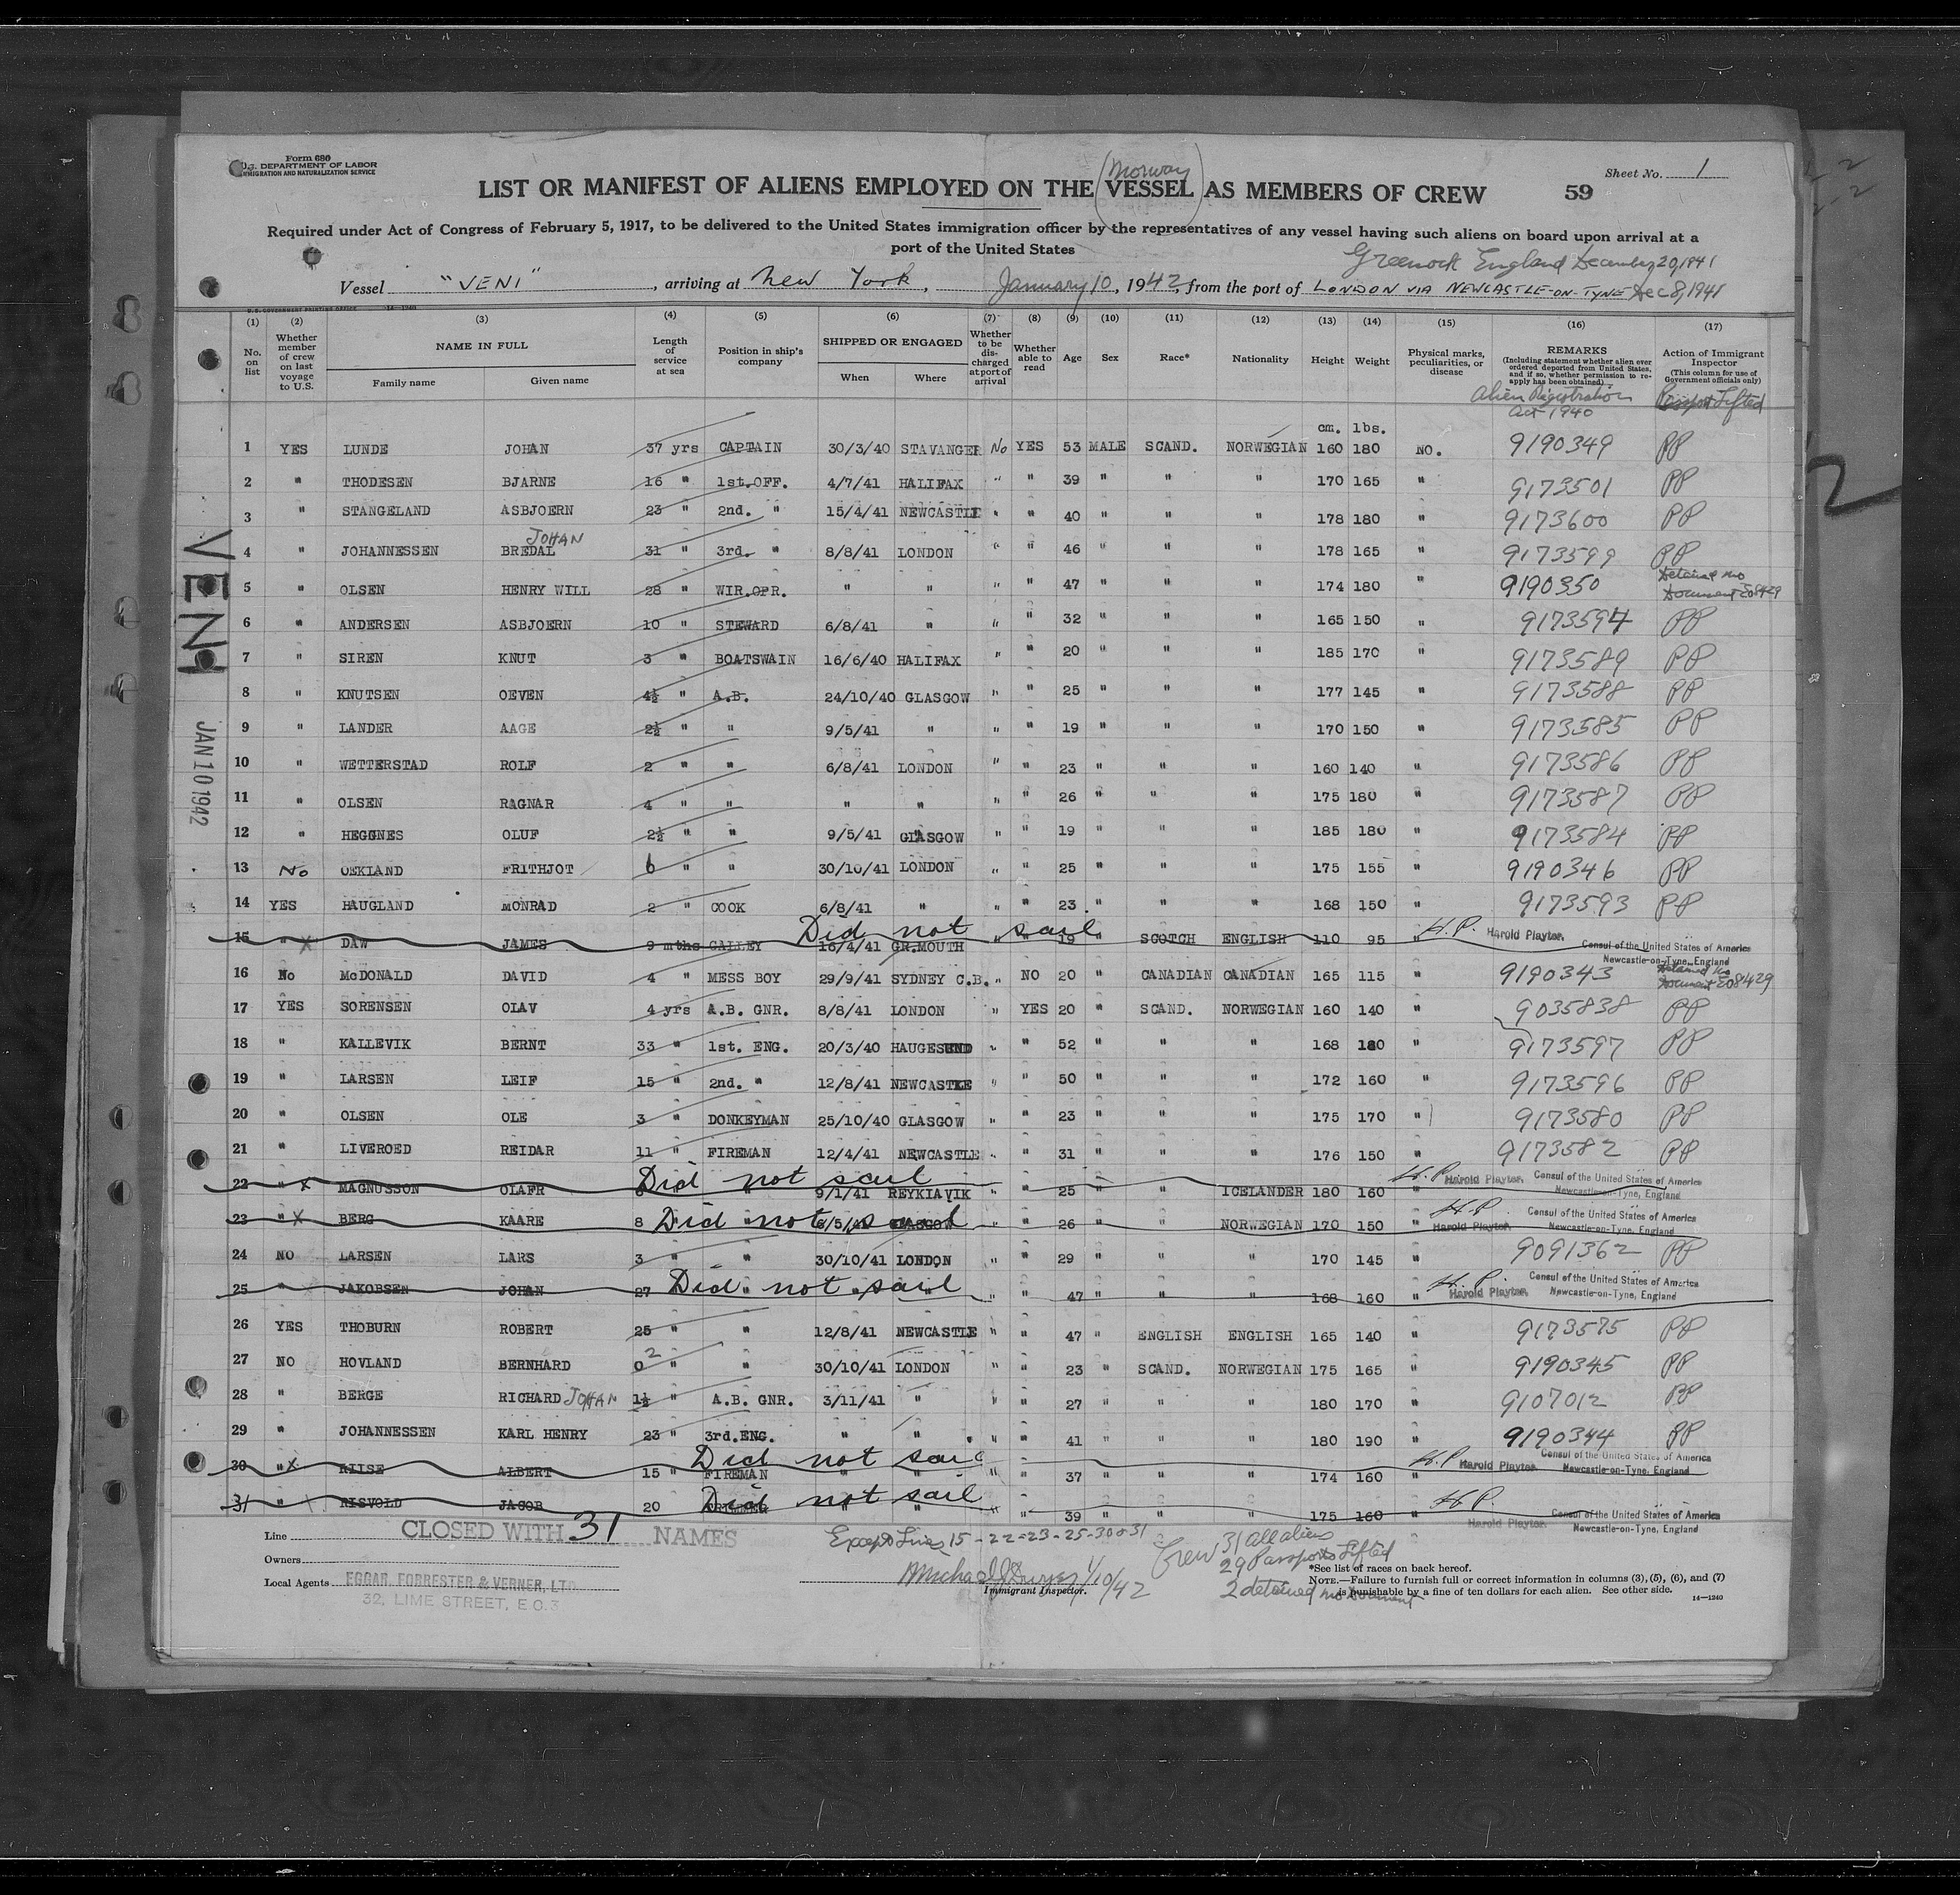 Form 680
U.S. DEPARTMENT OF LABOR
IMMIGRATION AND NATURALIZATION SERVICE
Sheet No. 1
(Norway)
LIST OR MANIFEST OF ALIENS EMPLOYED ON THE VESSEL AS MEMBERS OF CREW 59
Required under Act of Congress of February 5, 1917, to be delivered to the United States immigration officer by the representatives of any vessel having such aliens on board upon arrival at a
port of the United States
Greenock England December 20, 1941
Vessel "VENI", arriving at New York, January 10, 1942, from the port of LONDON VIA NEWCASTLE-ON-TYNE Dec 8, 1941
U.S. GOVERNMENT PRINTING OFFICE 14—1240
(1) (2) (3) (4) (5) (6) (7) (8) (9) (10) (11) (12) (13) (14) (15) (16) (17)
No. on list
Whether member of crew on last voyage to U.S.
NAME IN FULL
Family name Given name
Length of service at sea
Position in ship's company
SHIPPED OR ENGAGED
When Where
Whether to be discharged at port of arrival
Whether able to read
Age
Sex
Race*
Nationality
Height
Weight
Physical marks, peculiarities, or disease
REMARKS
(Including statement whether alien ever ordered deported from United States, and if so, whether permission to reapply has been obtained)
Action of Immigrant Inspector
(This column for use of Government officials only)
Alien Registration Act 1940
Passport Lifted
cm. lbs.
1 YES LUNDE JOHAN 37 yrs CAPTAIN 30/3/40 STAVANGER No YES 53 MALE SCAND. NORWEGIAN 160 180 NO. 9190349 PP
2 " THODESEN BJARNE 16 " 1st.OFF. 4/7/41 HALIFAX " " 39 " " " 170 165 " 9173501 PP
3 " STANGELAND ASBJOERN 23 " 2nd. " 15/4/41 NEWCASTLE " " 40 " " " 178 180 " 9173600 PP
JOHAN
4 " JOHANNESSEN BREDAL 31 " 3rd. " 8/8/41 LONDON " " 46 " " " 178 165 " 9173599 PP
5 " OLSEN HENRY WILL 28 " WIR.OPR. " " " " 47 " " " 174 180 " 9190350 Detained no Document E08429
6 " ANDERSEN ASBJOERN 10 " STEWARD 6/8/41 " " " 32 " " " 165 150 " 9173594 PP
7 " SIREN KNUT 3 " BOATSWAIN 16/6/40 HALIFAX " " 20 " " " 185 170 " 9173589 PP
8 " KNUTSEN OEVEN 4½ " A.B. 24/10/40 GLASGOW " " 25 " " " 177 145 " 9173588 PP
9 " LANDER AAGE 2½ " " 9/5/41 " " " 19 " " " 170 150 " 9173585 PP
10 " WETTERSTAD ROLF 2 " " 6/8/41 LONDON " " 23 " " " 160 140 " 9173586 PP
11 " OLSEN RAGNAR 4 " " " " " " 26 " " " 175 180 " 9173587 PP
12 " HEGGNES OLUF 2½ " " 9/5/41 GLASGOW " " 19 " " " 185 180 " 9173584 PP
13 No OEKLAND FRITHJOT 6 " " 30/10/41 LONDON " " 25 " " " 175 155 " 9190346 PP
14 YES HAUGLAND MONRAD 2 " COOK 6/8/41 " " " 23 " " " 168 150 " 9173593 PP
Did not sail
15 " X DAW JAMES 9 mths GALLEY 16/4/41 GR.MOUTH " " 19 " SCOTCH ENGLISH 110 95 " H.P. Harold Playter, Consul of the United States of America
Newcastle-on-Tyne, England
16 No McDONALD DAVID 4 " MESS BOY 29/9/41 SYDNEY C.B. " NO 20 " CANADIAN CANADIAN 165 115 " 9190343 Detained No Document E08429
17 YES SORENSEN OLAV 4 yrs A.B. GNR. 8/8/41 LONDON " YES 20 " SCAND. NORWEGIAN 160 140 " 9035838 PP
18 " KALLEVIK BERNT 33 " 1st. ENG. 20/3/40 HAUGESUND " " 52 " " " 168 180 " 9173597 PP
19 " LARSEN LEIF 15 " 2nd. " 12/8/41 NEWCASTLE " " 50 " " " 172 160 " 9173596 PP
20 " OLSEN OLE 3 " DONKEYMAN 25/10/40 GLASGOW " " 23 " " " 175 170 " 9173580 PP
21 " LIVEROED REIDAR 11 " FIREMAN 12/4/41 NEWCASTLE " " 31 " " " 176 150 " 9173582 PP
Did not sail
22 " X MAGNUSSON OLAFR 9/1/41 REYKIAVIK " " 25 " " ICELANDER 180 160 " H.P. Harold Playter, Consul of the United States of America
Newcastle-on-Tyne, England
23 " X BERG KAARE 8 Did not sail " " 26 " " NORWEGIAN 170 150 " H.P. Harold Playter, Consul of the United States of America
Newcastle-on-Tyne, England
24 NO LARSEN LARS 3 " " 30/10/41 LONDON " " 29 " " " 170 145 " 9091362 PP
25 " JAKOBSEN JOHAN 27 Did not sail " " 47 " " " 168 160 " H.P. Harold Playter, Consul of the United States of America
Newcastle-on-Tyne, England
26 YES THOBURN ROBERT 25 " " 12/8/41 NEWCASTLE " " 47 " ENGLISH ENGLISH 165 140 " 9173575 PP
27 NO HOVLAND BERNHARD 0 2 " " 30/10/41 LONDON " " 23 " SCAND. NORWEGIAN 175 165 " 9190345 PP
28 " BERGE RICHARD JOHAN 1½ " A.B. GNR. 3/11/41 " " " 27 " " " 180 170 " 9107012 PP
29 " JOHANNESSEN KARL HENRY 23 " 3rd.ENG. " " " " 41 " " " 180 190 " 9190344 PP
Did not sail
30 " X RIISE ALBERT 15 " FIREMAN " " " " 37 " " " 174 160 " H.P. Harold Playter, Consul of the United States of America
Newcastle-on-Tyne, England
31 " RISVOLD JACOB 20 Did not sail " " 39 " " " 175 160 " H.P. Harold Playter, Consul of the United States of America
Newcastle-on-Tyne, England
VENI
JAN 10 1942
2
Line CLOSED WITH 31 NAMES
Owners
Local Agents EGGAR, FORRESTER & VERNER, LTD
32, LIME STREET, E.C.3
Except Lines 15-22-23-25-30 & 31
1/10/42
Immigrant Inspector.
Crew 31 all aliens
29 Passports Lifted
2 detained no Document
*See list of races on back hereof.
NOTE.—Failure to furnish full or correct information in columns (3), (5), (6), and (7)
is punishable by a fine of ten dollars for each alien. See other side.
14—1240